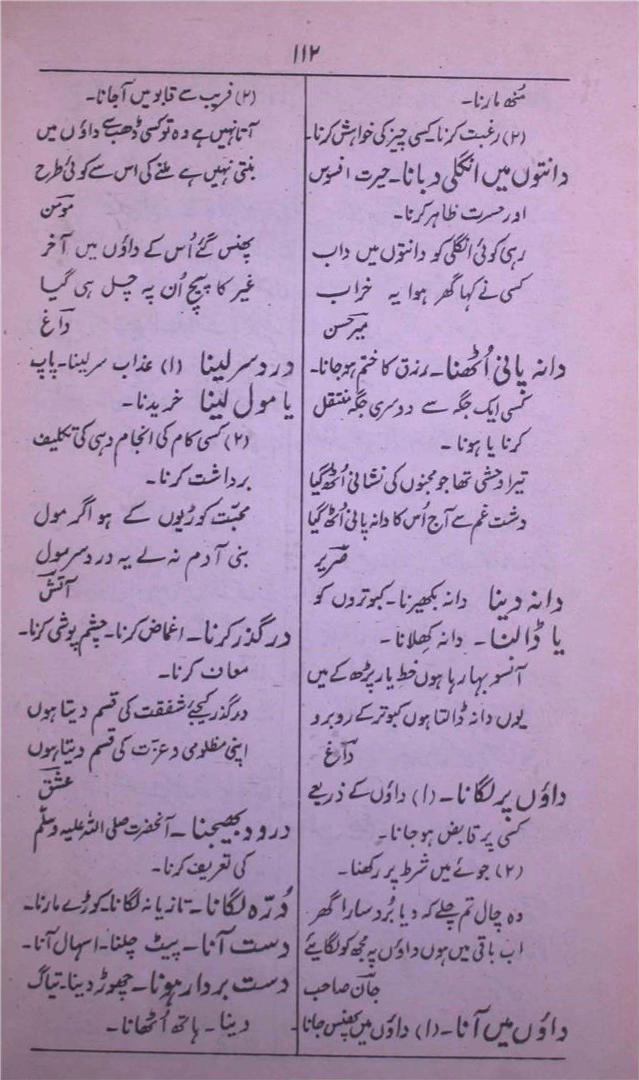 ۱۱۲
مُنھ مارنا۔
(۲) رغبت کرنا۔ کسی چیز کی خواہش کرنا۔
دانتوں میں انگلی دبانا۔ حیرت افسوس
اور حسرت ظاہر کرنا۔
رہی کوئی انگلی کو دانتوں میں داب
کسی نے کہا گھر ہوا یہ خراب
میر حسن
دانہ پانی اُٹھنا۔ رزق کا ختم ہو جانا۔
کسی ایک جگہ سے دوسری جگہ منتقل
کرنا یا ہونا۔
تیرا وحشی تھا جو مجنوں کی نشانی اُٹھ گیا
دشت غم سے آج اُس کا دانہ پانی اُٹھ گیا
ضریر
دانہ دینا دانہ بکھیرنا۔ کبوتروں کو
یا ڈالنا۔ دانہ کھلانا۔
آنسو بہا رہا ہوں خط یار پڑھ کے میں
یوں دانہ ڈالتا ہوں کبوتر کے روبرو
داغ
داؤں پر لگانا۔ (۱) داؤں کے ذریعے
کسی پر قابض ہو جانا۔
(۲) جوئے میں شرط پر رکھنا۔
وہ چال تم چلے کہ دیا بُرد سارا گھر
اب باقی میں ہوں داؤں پہ مجھ کو لگائیے
جان صاحب
داؤں میں آنا۔ (۱) داؤں میں پھنس جانا۔
(۲) فریب سے قابو میں آجانا۔
آتا نہیں ہے وہ تو کسی ڈھب سے داؤں میں
بنتی نہیں ہے ملنے کی اس سے کوئی طرح
مومن
پھنس گئے اُس کے داؤں میں آخر
غیر کا پیچ اُن پہ چل ہی گیا
داغ
درد سر لینا (۱) عذاب سر لینا۔ پاپ
یا مول لینا خریدنا۔
(۲) کسی کام کی انجام دہی کی تکلیف
برداشت کرنا۔
محبّت کوڑیوں کے ہو اگر مول
بنی آدم نہ لے یہ درد سر مول
آتش
درگذر کرنا۔ اغماض کرنا۔ چشم پوشی کرنا۔
معاف کرنا۔
درگذر کیجئے شفقت کی قسم دیتا ہوں
اپنی مظلومی و عزّت کی قسم دیتا ہوں
عشق
درود بھیجنا۔ آنحضرت صلی اللہ علیہ وسلّم
کی تعریف کرنا۔
دُرّہ لگانا۔ تازیانہ لگانا۔ کوڑے مارنا۔
دست آنا۔ پیٹ چلنا۔ اسہال آنا۔
دست بردار ہونا۔ چھوڑ دینا۔ تیاگ
دینا۔ ہاتھ اُٹھانا۔